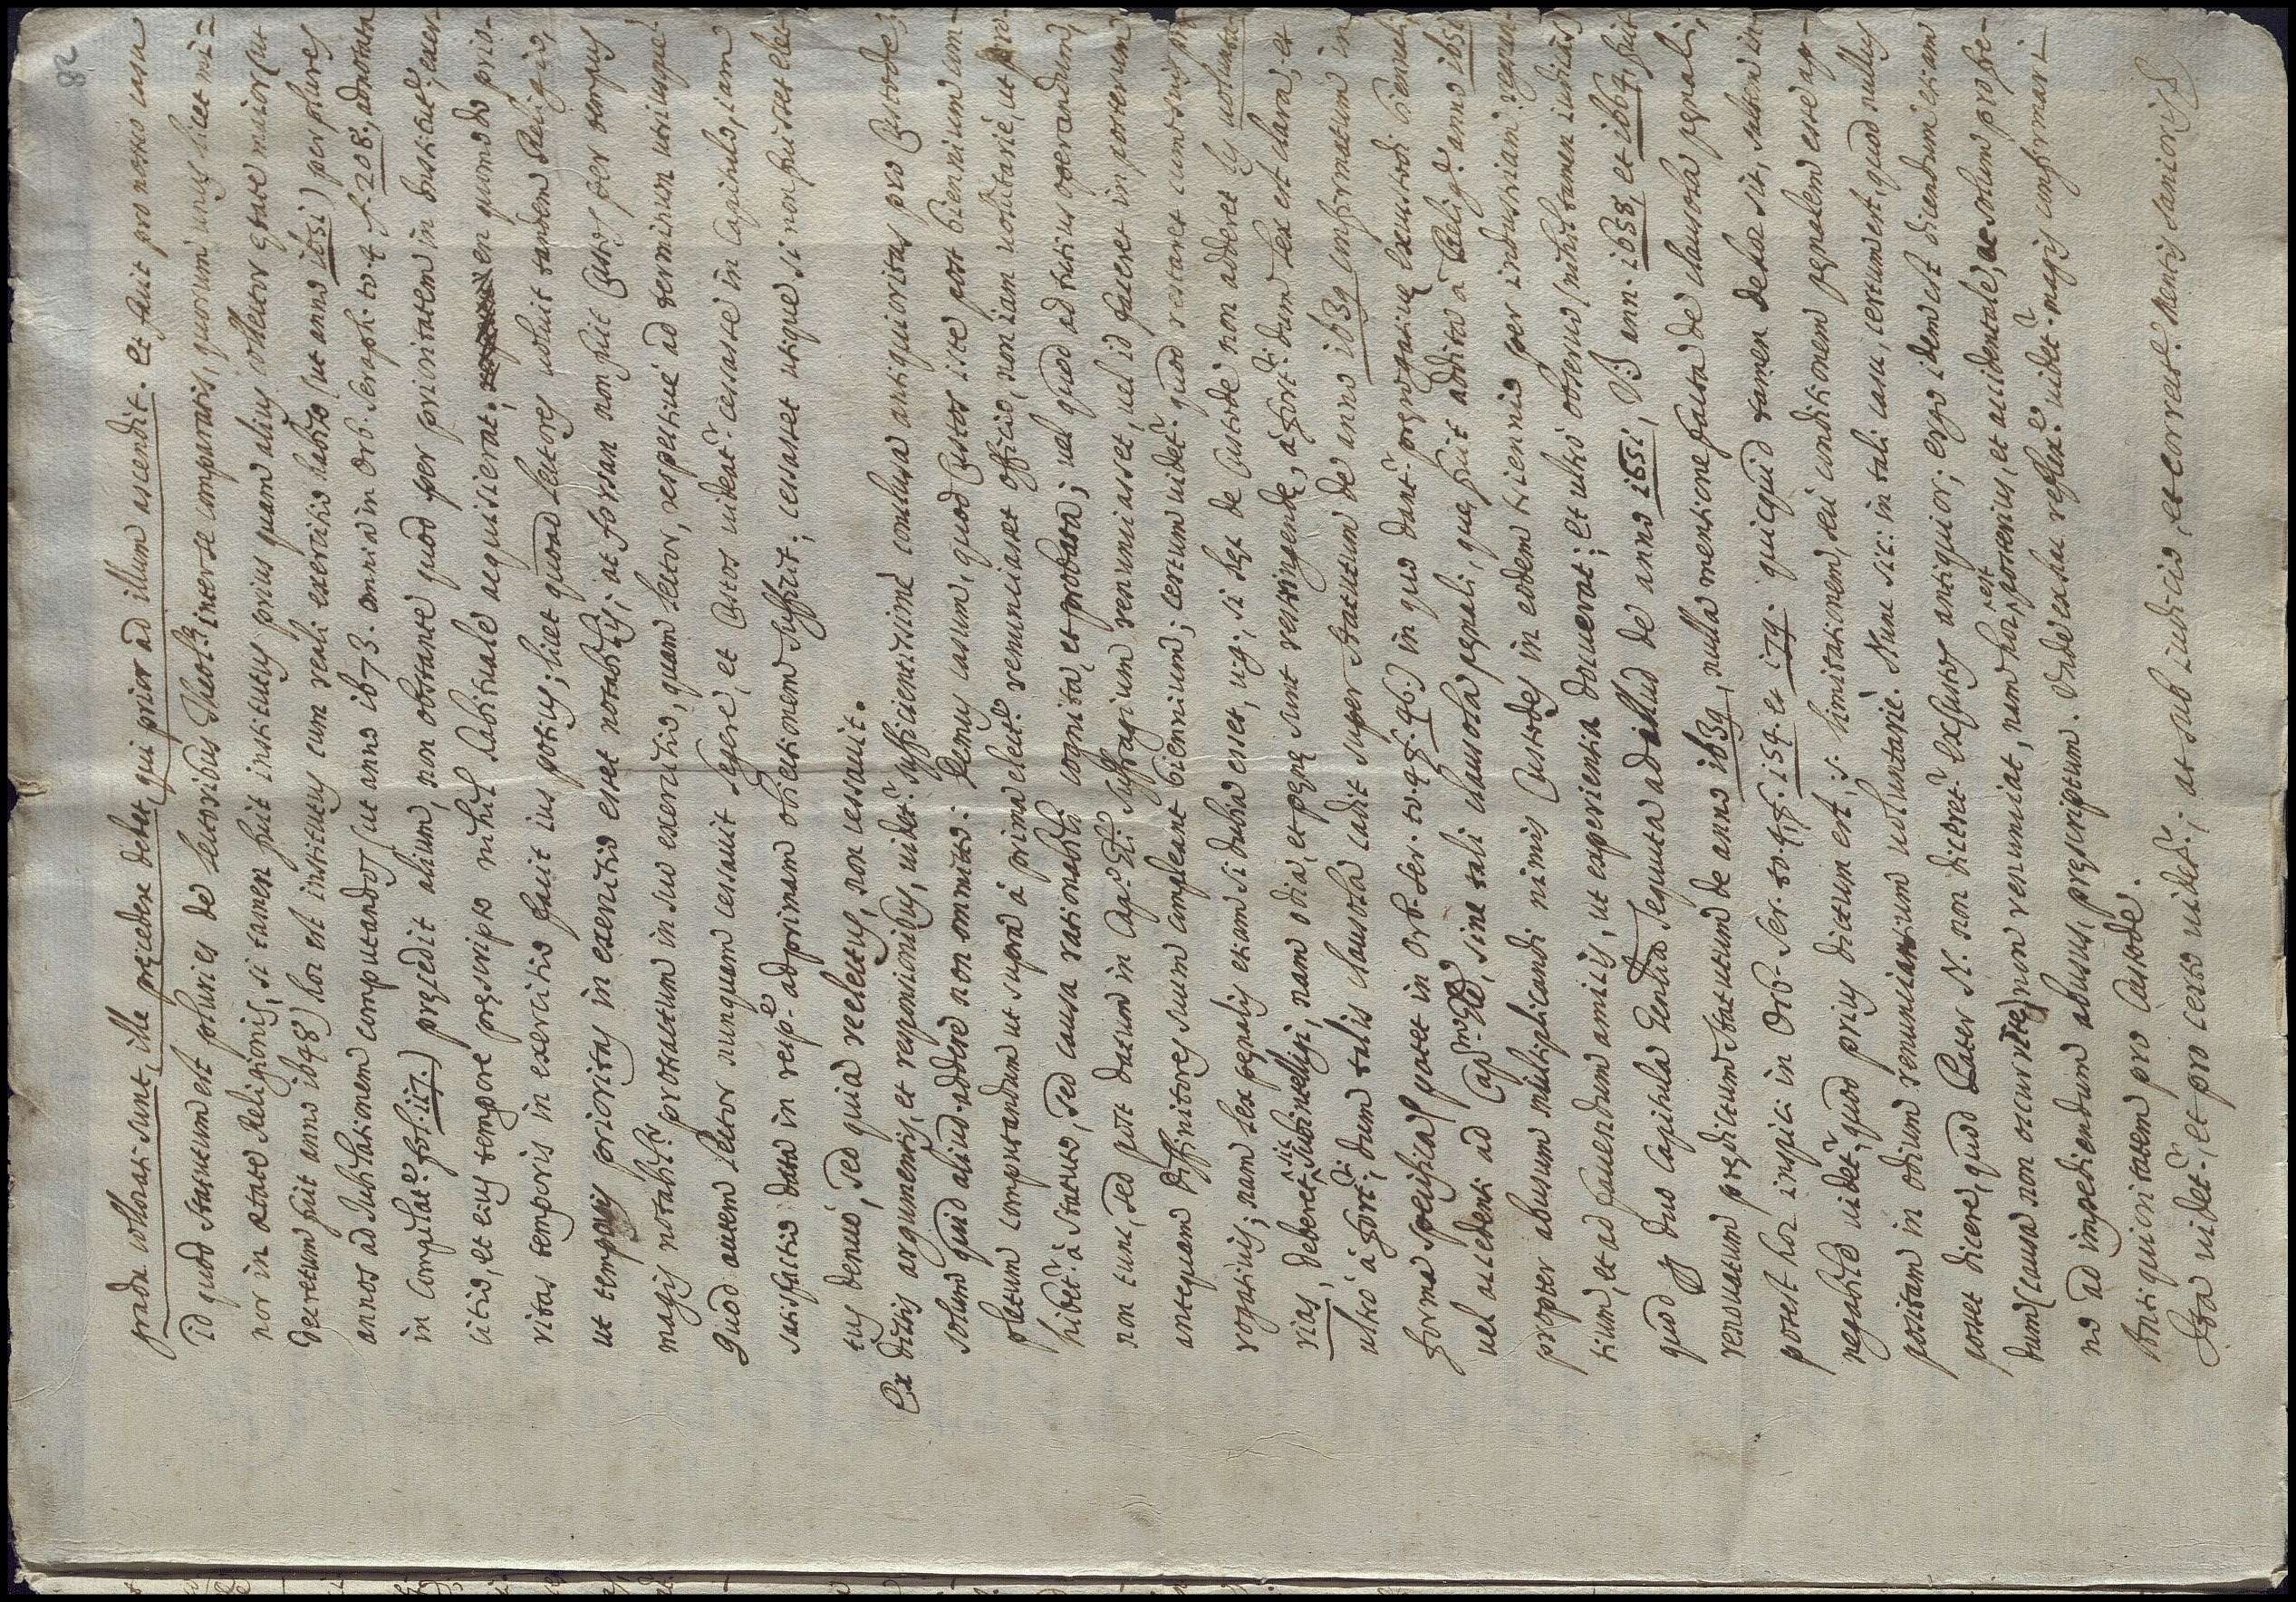 82
gradu collocati sunt, ille precedere debet, qui prior ad illum ascendit. Et facit pro nostro casu
id quod statutum est pluries de Lectoribus Theol.æ inter se comparatis, quorum unus licet mi=
nor in ætate Religionis, si tamen fuit institutus prius quam alius collector ætate maior (ut
decretum fuit anno 1648) hoc est institutus cum reali exercitio habito (ut anno 1651) per plures
annos ad Jubilationem computandos (ut anno 1673. omnia in Orb. Seraph. to. 4 f. 208. adnotata
in Complat.e fol. 117.) precedit alium, non obstante quod per prioritatem in
citio, et eius tempore prescripto nihil habituale acquisierat, en quomodo prio-
ritas temporis in exercitio facit ius potius; licet quoad Lectores voluit tandem Religio,
ut temporis prioritas in exercitio esset notabilis; at forsan non fuit Custos per tempus
magis notabil.r protractum in suo exercitio, quam Lector, respectiuè ad terminum utriusque?
Quod autem Lector nunquam cessauit legere, et Custos uideat.r cessasse in Capitulo, iam
satisfactio data in resp.e ad primam obiectionem sufficit; cessasset utique si non fuisset elec-
tus denuo, sed quia reelectus, non cessauit.
Ex dictis argumentis, et responsionibus, uidet.r sufficientissimè conclusa antiquioritas pro Custode;
solum quid aliud addere non omitto. Demus casum, quod Custos iste post biennium com-
pletum computandum ut supra à prima elect.e renunciasset officio, non iam uoluntariè, ut pro-
hibet.r à Statuto, sed causa rationabili cognita, et probata; uel quod ad tutius operandum,
non tunc, sed post datum in Cap.o Gñli suffragium renunciasset, uel id faceret in posterum
antequam Diffinitores suum compleant biennium; certum uidet.r quod restaret cum suis pre-
rogatiuis; nam lex penalis etiam si dubia esset, uig. si lex de Custode non adderet ly uolunta-
riè, deberet sic subintelligi, nam odia, et penę sunt restringendę, à fort.ri dum lex est clara, et
ultro à fort.ri, dum talis clausola cadit super statutum de anno 1639 confirmatum in
forma specifica (patet in Orb. Ser. to. 4. f. 46.) in quo dant.r prerogatiuę
uel accidenti ad Cap.m Gñle, sine tali clausola penali, quę fuit addita à Relig.e anno 1651
propter abusum multiplicandi nimis Custodes in eodem triennio per industriam
tium, et ad fauendum amicis, ut experientia docuerat; et ultrò obseruo (nihil tamen iudicando)
quod duo Capitula Gñlia sequuta ad illud de anno 1651, ann. 1658, et 1664, fuit
renouatum predictum statutum de anno 1639, nulla mentione facta de clausola penali,
potest hoc inspici in Orb. Ser. to. 4. f. 154. et 179. quicquid tamen de hoc sit, saltem in-
negabile uidet.r, quod prius dictum est, s. limitationem, seu conditionem penalem esse ap-
positam in odium renunciantium uoluntariè. Nunc sic: in tali casu, certum est, quod nullus
posset dicere, quod Pater N. non diceret.r Excustos antiquior; ergo idem est dicendum etiam
dum (causa non occurrẽte) non renunciat, nam hoc est posterius, et accidentale, ac solum pro fre-
no ad impediendum abusus, prescriptum. Unde ex hac reflex.e uidet.r magis confirmari
Antiquioritatem pro Custode.
Ita uidet.r, et pro certo uidet.r; at sub iudicio, et correct.e Mentis Sanioris